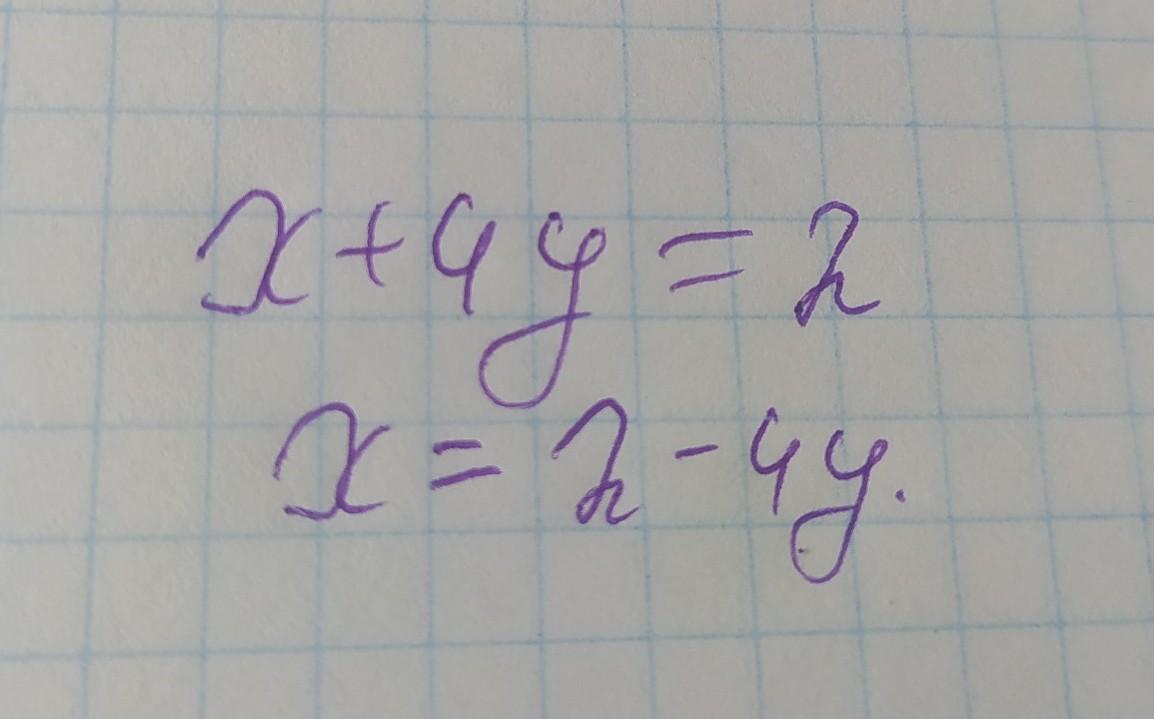 x+4y=2
x=2-4y.